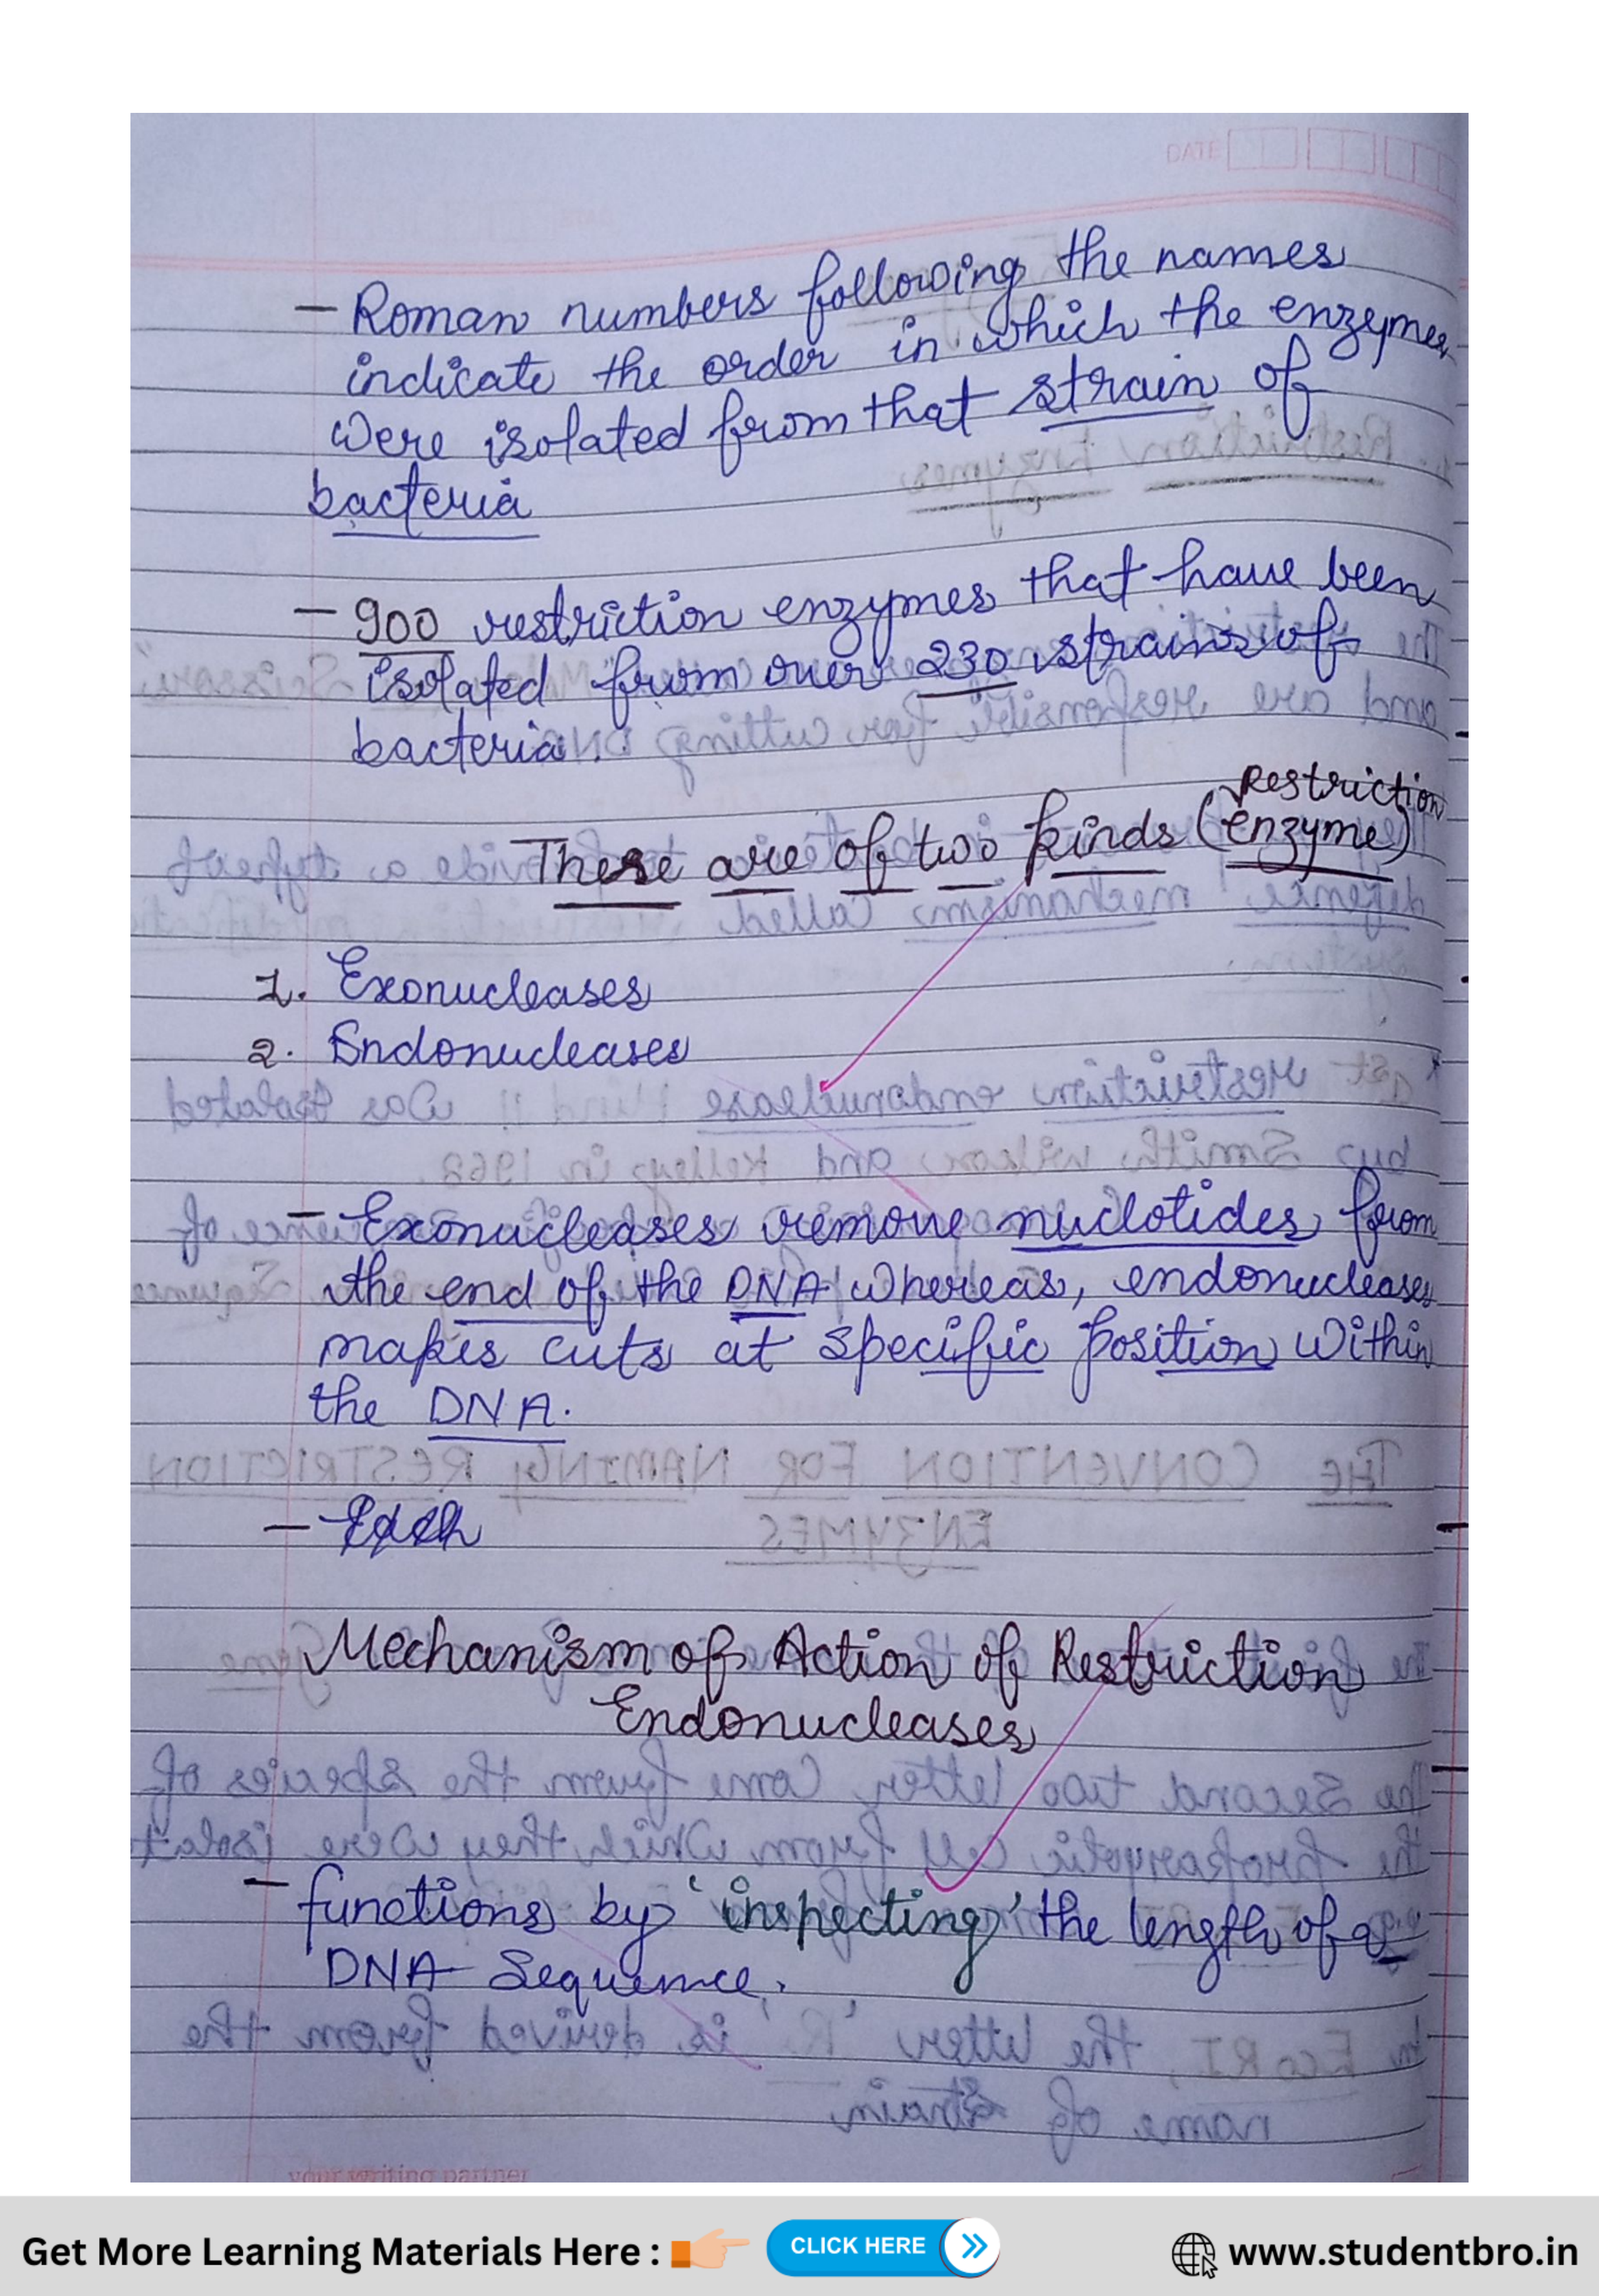 DATE
– Roman numbers following the names
indicate the order in which the enzymes
were isolated from that strain of
bacteria
– 900 restriction enzymes that have been
isolated from over 230 strains of
bacteria.
These are of two kinds (Restriction
enzyme)
1. Exonucleases
2. Endonucleases
– Exonucleases remove nuclotides from
the end of the DNA whereas, endonucleases
makes cuts at specific position within
the DNA.
Mechanism of Action of Restriction
Endonucleases
– functions by 'inspecting' the length of a
DNA Sequence.
your writing partner
Get More Learning Materials Here :
CLICK HERE
www.studentbro.in